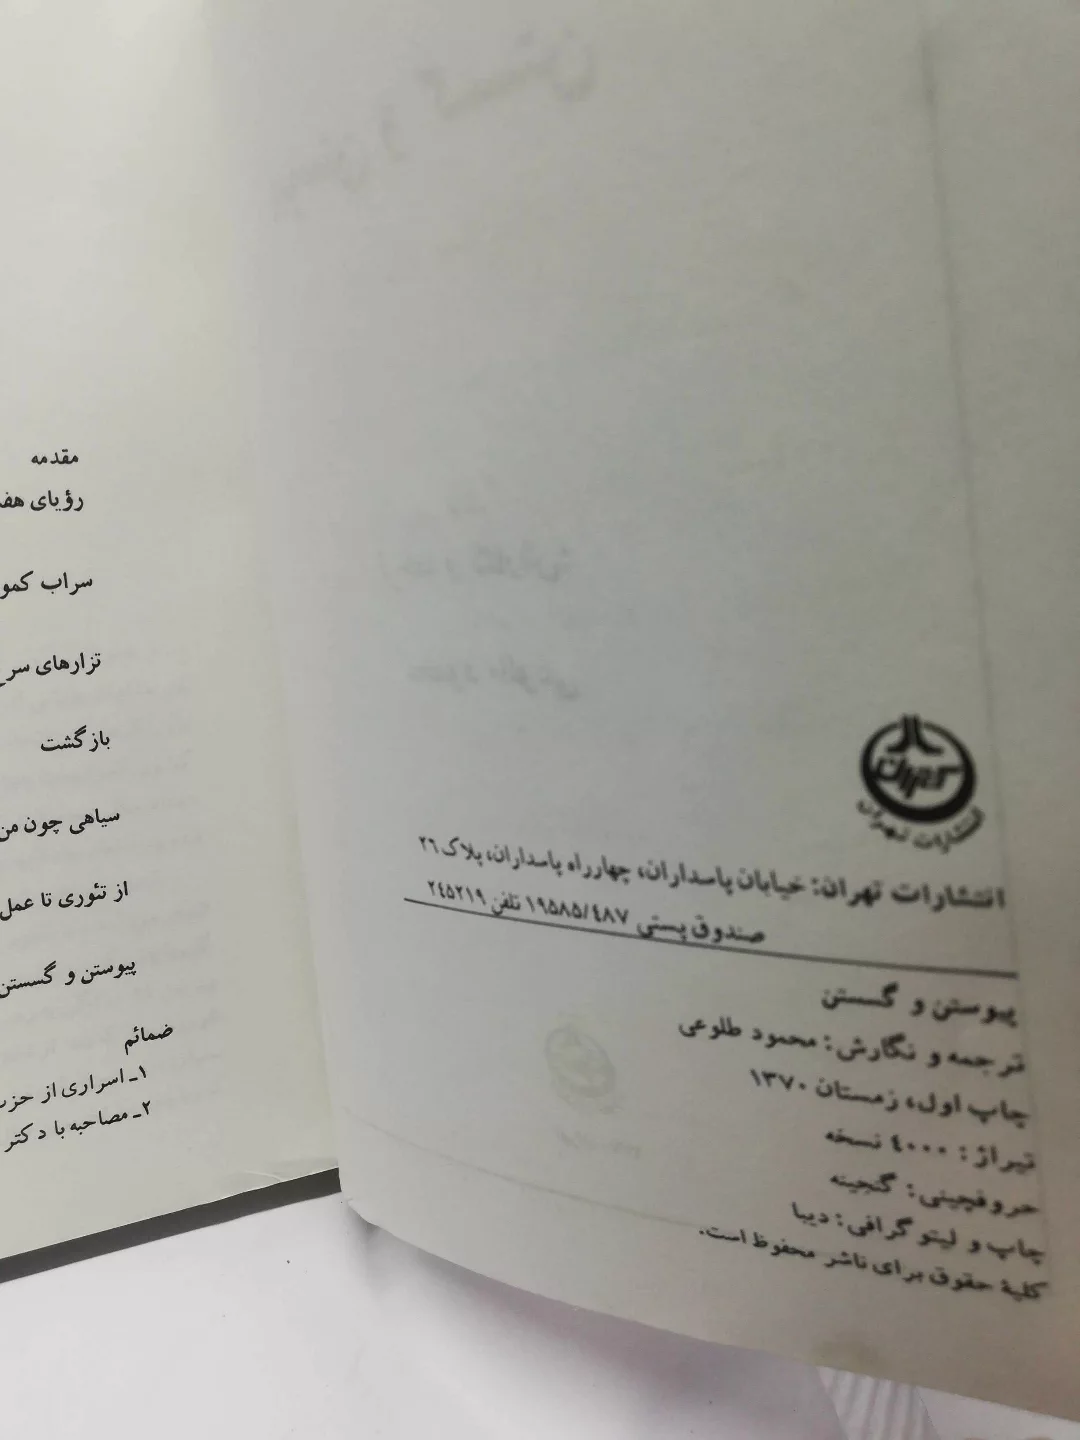 تهران
انتشارات تهران
انتشارات تهران: خیابان پاسداران، چهارراه پاسداران، پلاک ۲۶
صندوق پستی ۱۹۵۸۵/٤۸۷ تلفن ۲٤۵۲۱۹
پیوستن و گسستن
ترجمه و نگارش: محمود طلوعی
چاپ اول، زمستان ۱۳۷۰
تیراژ: ٤۰۰۰ نسخه
حروفچینی: گنجینه
چاپ و لیتوگرافی: دیبا
کلیهٔ حقوق برای ناشر محفوظ است.
مقدمه
رؤیای هف
سراب کمو
تزارهای سرخ
بازگشت
سیاهی چون من
از تئوری تا عمل
پیوستن و گسستن
ضمائم
۱ـ اسراری از حزب
۲ـ مصاحبه با دکتر